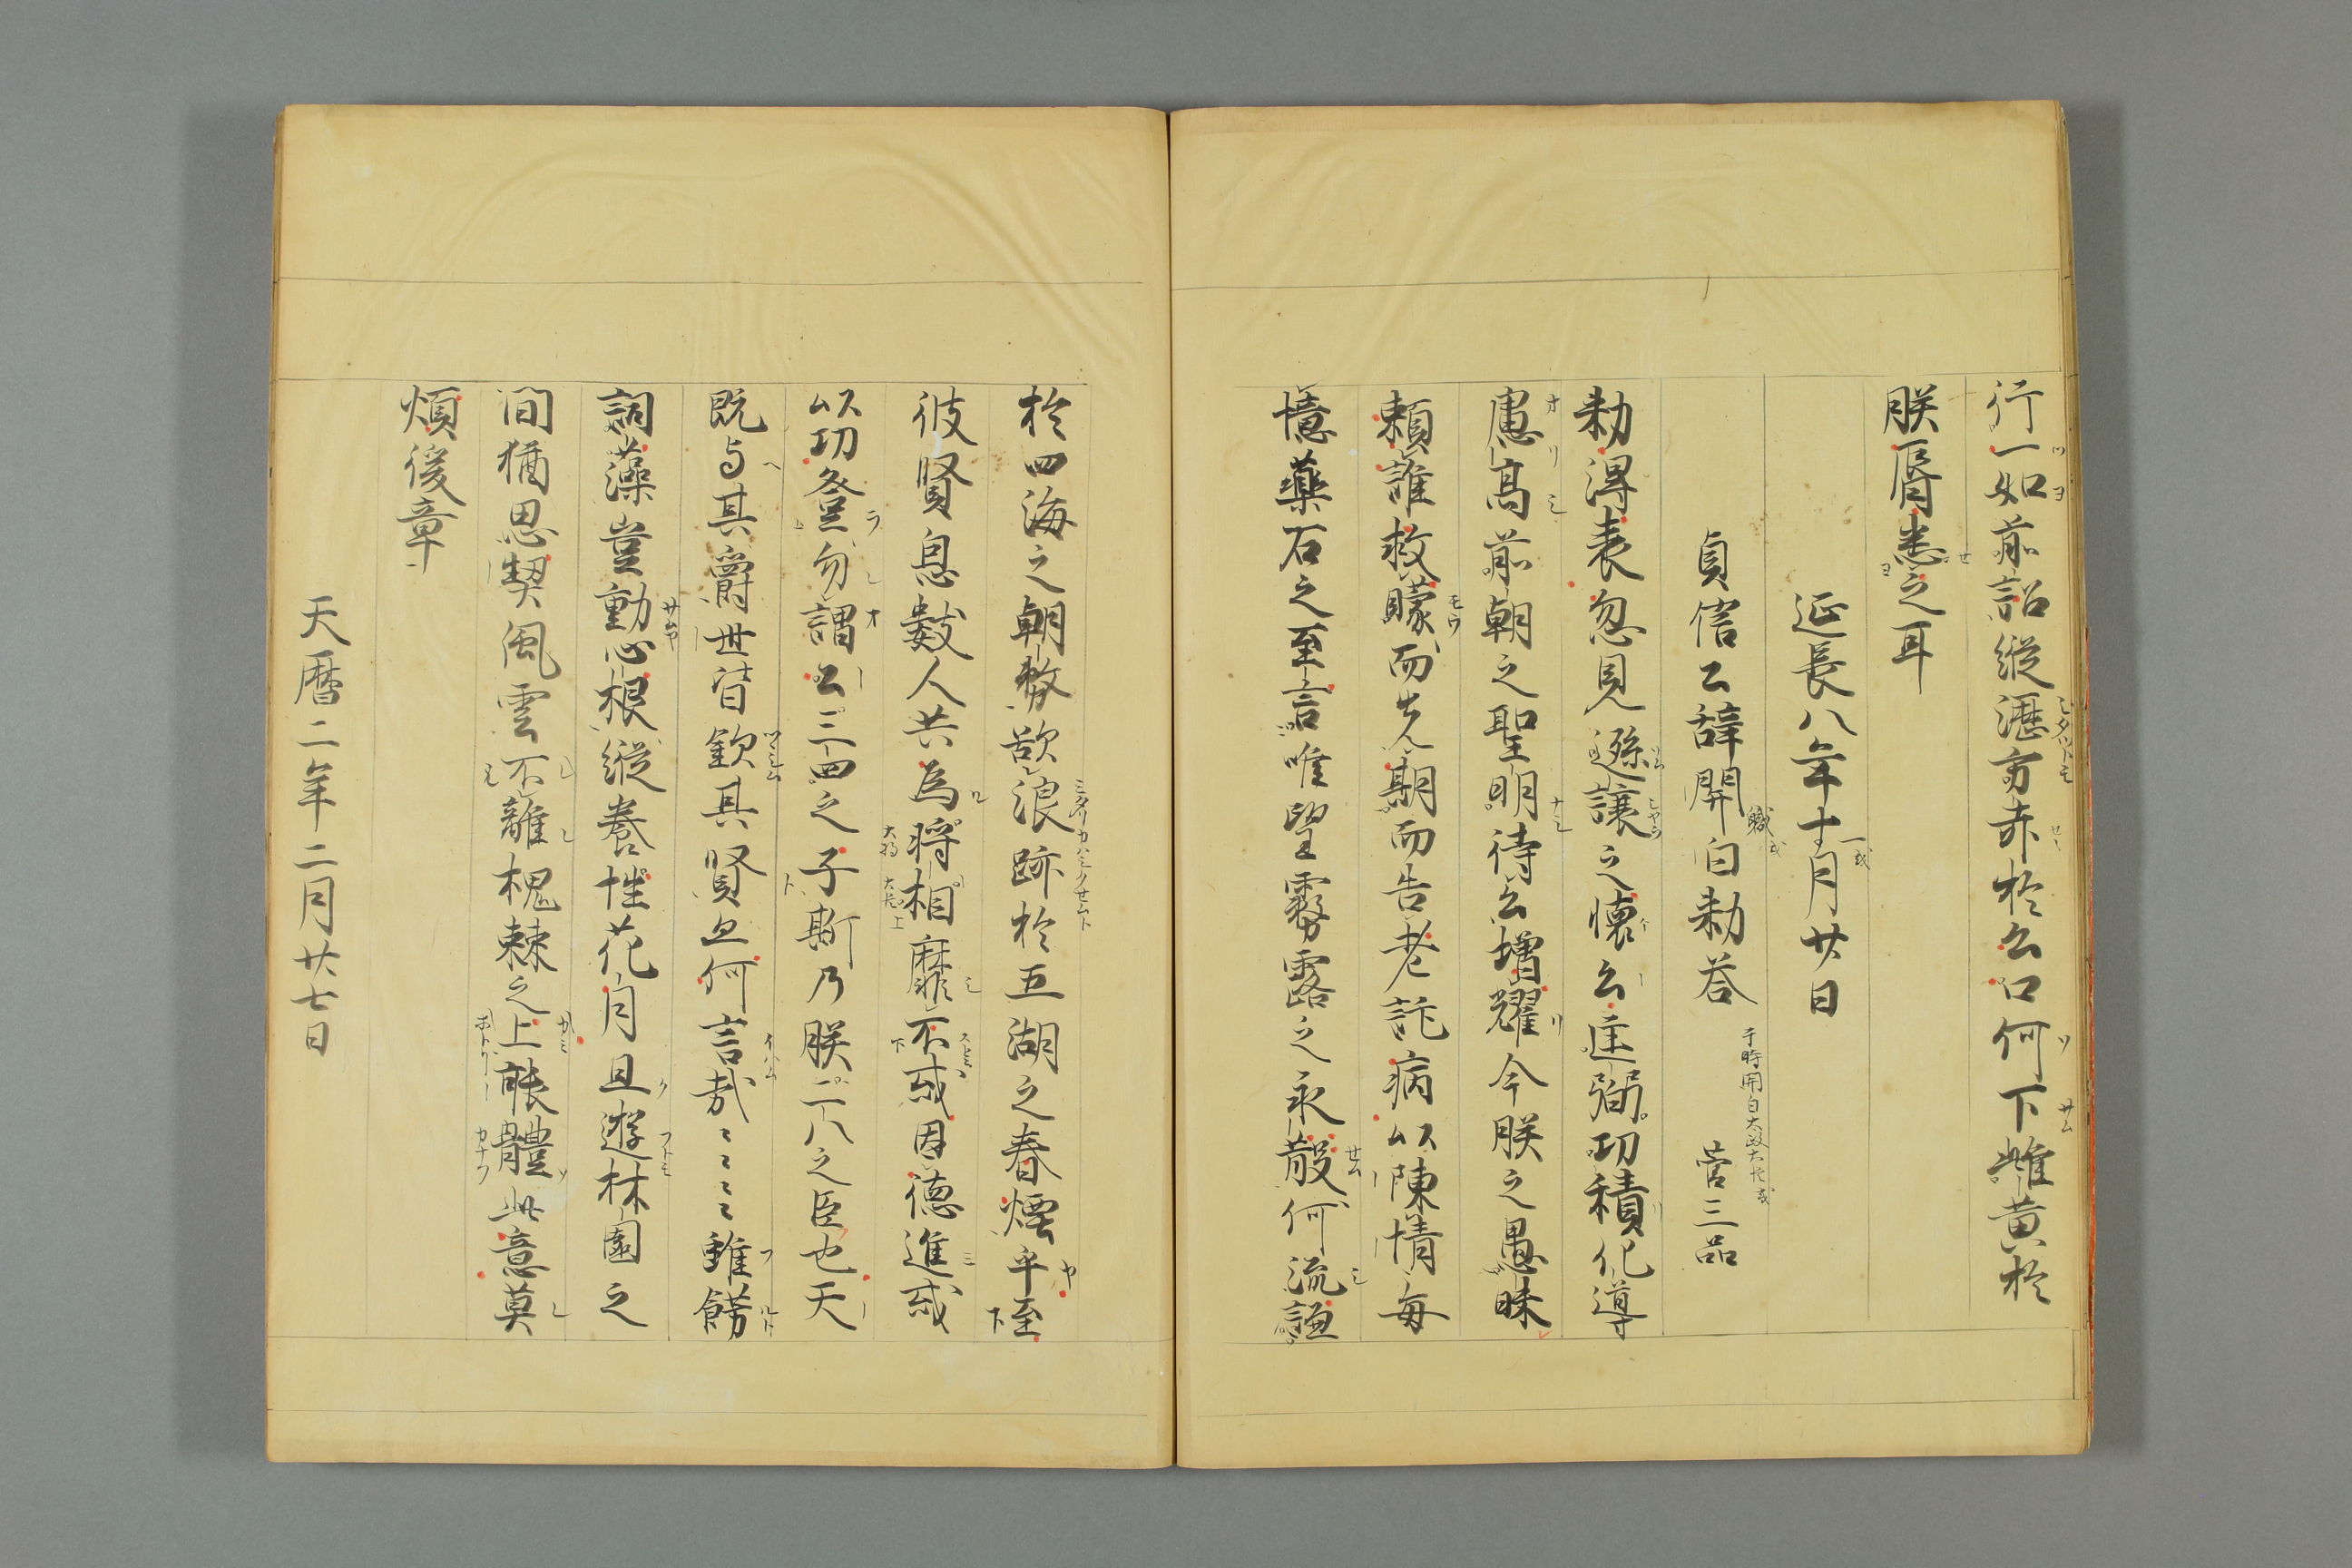 行一如前詔縦瀝亦赤於公口何下雌黄於
朕脣悉之耳
延長八年十月廿日
貞信公辞関白勅答 菅三品
于時関白太政大臣或
勅得表忽見遜譲之懐公匡弼功積化導
慮高前朝之聖明待公増耀今朕之愚昧
頼誰救矇而先期而告老託病以陳情毎
憶薬石之至言唯望霧露之永散何流謙
於四海之朝務欲浪跡於五湖之春煙乎至
彼賢息数人共為将相靡不或因徳進或
以功登勿謂公三四之子斯乃朕二八之臣也天
既与其爵世皆欽其賢且何言哉〻〻〻〻雖餝
詞藻豈動心根縦養性花月且遊林園之
間猶思契風雲不離槐棘之上能體此意莫
煩後章
天暦二年二月廿七日